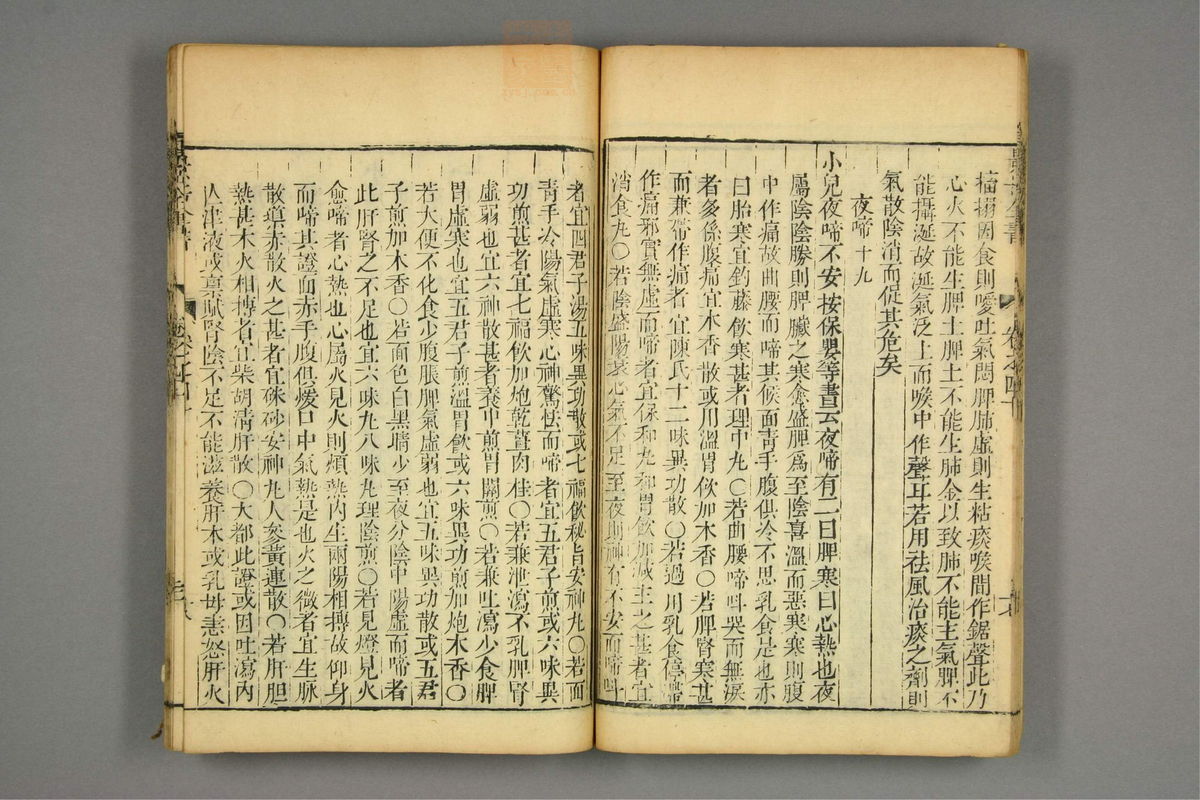 搐搦因食則噯吐氣悶脾肺虛則生粘痰喉間作鋸聲此乃
心火不能生脾土脾土不能生肺金以致肺不能主氣脾不
能攝涎故涎氣泛上而喉中作聲耳若用祛風治痰之劑則
氣散陰消而促其危矣
夜啼十九
小兒夜啼不安按保嬰等書云夜啼有二曰脾寒曰心熱也夜
屬陰陰勝則脾臟之寒愈盛脾為至陰喜溫而惡寒寒則腹
中作痛故曲腰而啼其候面青手腹俱冷不思乳食是也亦
曰胎寒宜鈎藤飲寒甚者理中丸○若曲腰啼叫哭而無淚
者多係腹痛宜木香散或用溫胃飲加木香○若脾腎寒甚
而兼帶作痛者宜陳氏十二味異功散○若過用乳食停滯
作痛邪實無虛而啼者宜保和丸和胃飲加減主之甚者宜
消食丸○若陰盛陽衰心氣不足至夜則神有不安而啼叫
者宜四君子湯五味異功散或七福飲秘旨安神丸○若面
青手冷陽氣虛寒心神驚怯而啼者宜五君子煎或六味異
功煎甚者宜七福飲加炮乾薑肉桂○若兼泄瀉不乳脾腎
虛弱也宜六神散甚者養中煎胃關煎○若兼吐瀉少食脾
胃虛寒也宜五君子煎溫胃飲或六味異功煎加炮木香○
若大便不化食少腹脹脾氣虛弱也宜五味異功散或五君
子煎加木香○若面色白黑睛少至夜分陰中陽虛而啼者
此肝腎之不足也宜六味丸八味丸理陰煎○若見燈見火
愈啼者心熱也心屬火見火則煩熱內生兩陽相搏故仰身
而啼其證面赤手腹俱煖口中氣熱是也火之微者宜生脈
散導赤散火之甚者宜硃砂安神丸人參黃連散○若肝胆
熱甚木火相搏者宜柴胡清肝散○大都此證或因吐瀉內
亾津液或稟賦腎陰不足不能滋養肝木或乳母恚怒肝火